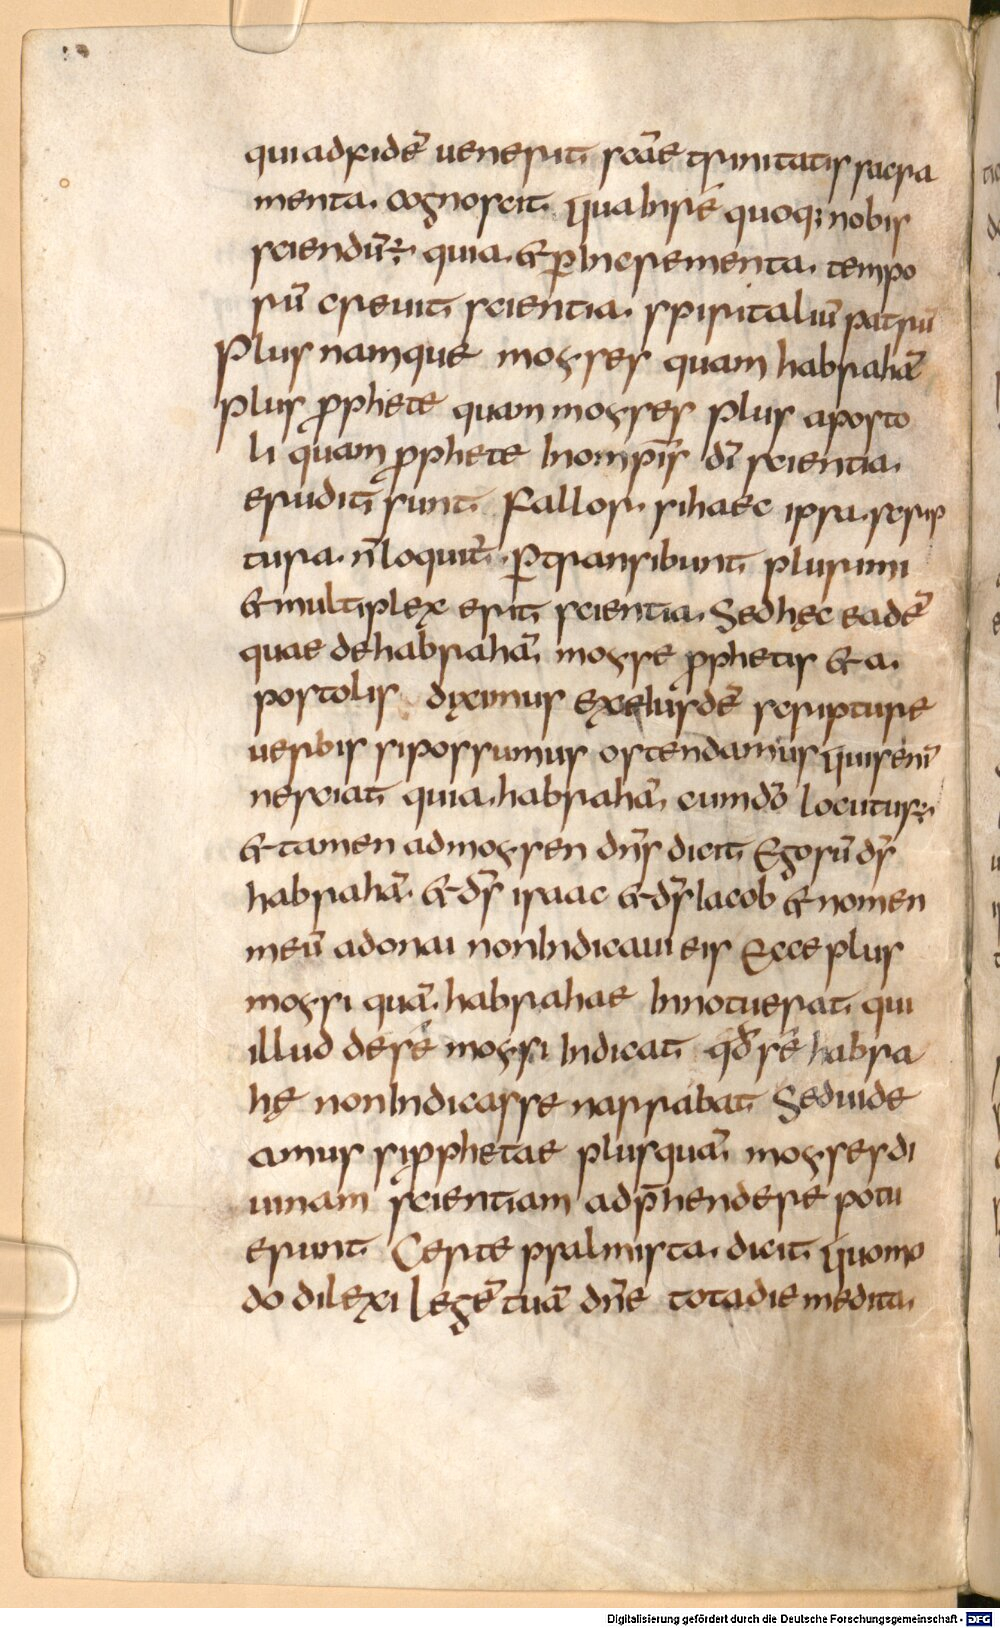 qui ad fidē uenerit scāe trinitatis sacra
menta. cognoscit. Qua in re quoq; nobis
sciendū÷. quia. & ꝑ incrementa. tempo
rū creuit scientia. spiritaliū patrū
Plus namque moyses quam habrahā
Plus ꝓphete quam moyses plus aposto
li quam ꝓphete In omp̄is dī scientia.
eruditi sunt. Fallor. si haec ipsa. scrip
tura. n̄ loquit̄. ꝑtransibunt plurimi
& multiplex erit scientia. Sed hęc eadē
quae de habrahā, moyse ꝓphetis & a.
postolis diximus ex eiusdē scripture
uerbis si possumus ostendamus Quis enī
nesciat quia. habrahā, cum dō locutus÷.
& tamen ad moysen dn̄s dicit Ego sū ds̄
habrahā. & ds̄ isaac & ds̄ Iacob & nomen
meū adonai non Indicaui eis Ecce plus
moysi quā. habrahae Innotuerat qui
illud de se moysi Indicat qd̄ se habra
hę non Indicasse narrabat Sed uide
amus si ꝓphetae plus quā, moyses di
uinam scientiam adp̄hendere potu
erunt. Certe psalmista. dicit Quomo
do dilexi legē tuā dn̄e tota die medita.
Digitalisierung gefördert durch die Deutsche Forschungsgemeinschaft - DFG